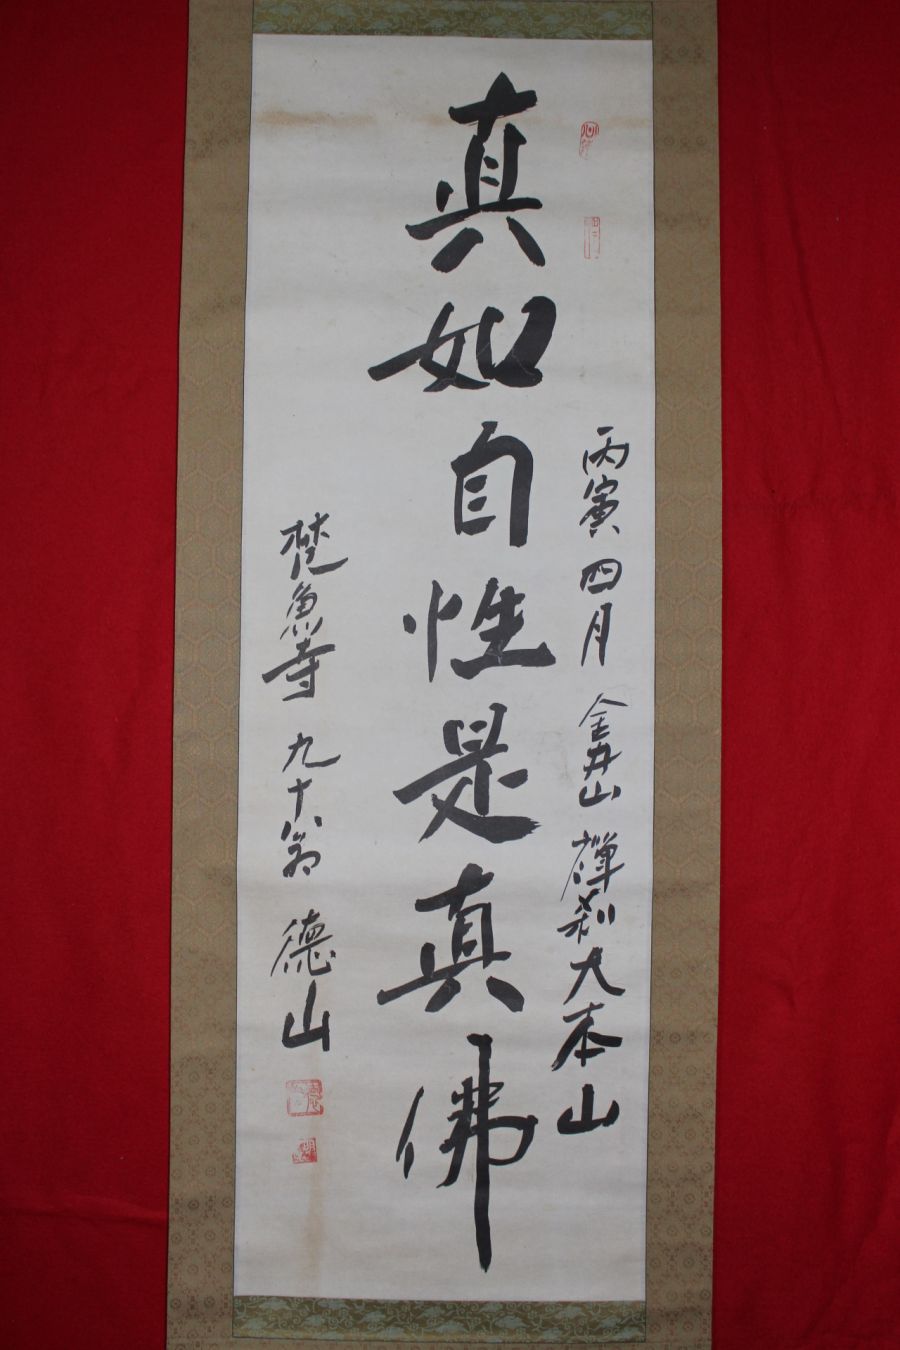 丙寅 四月 金井山 禪刹大本山
真如自性是真佛
梵魚寺 九十八翁 德山